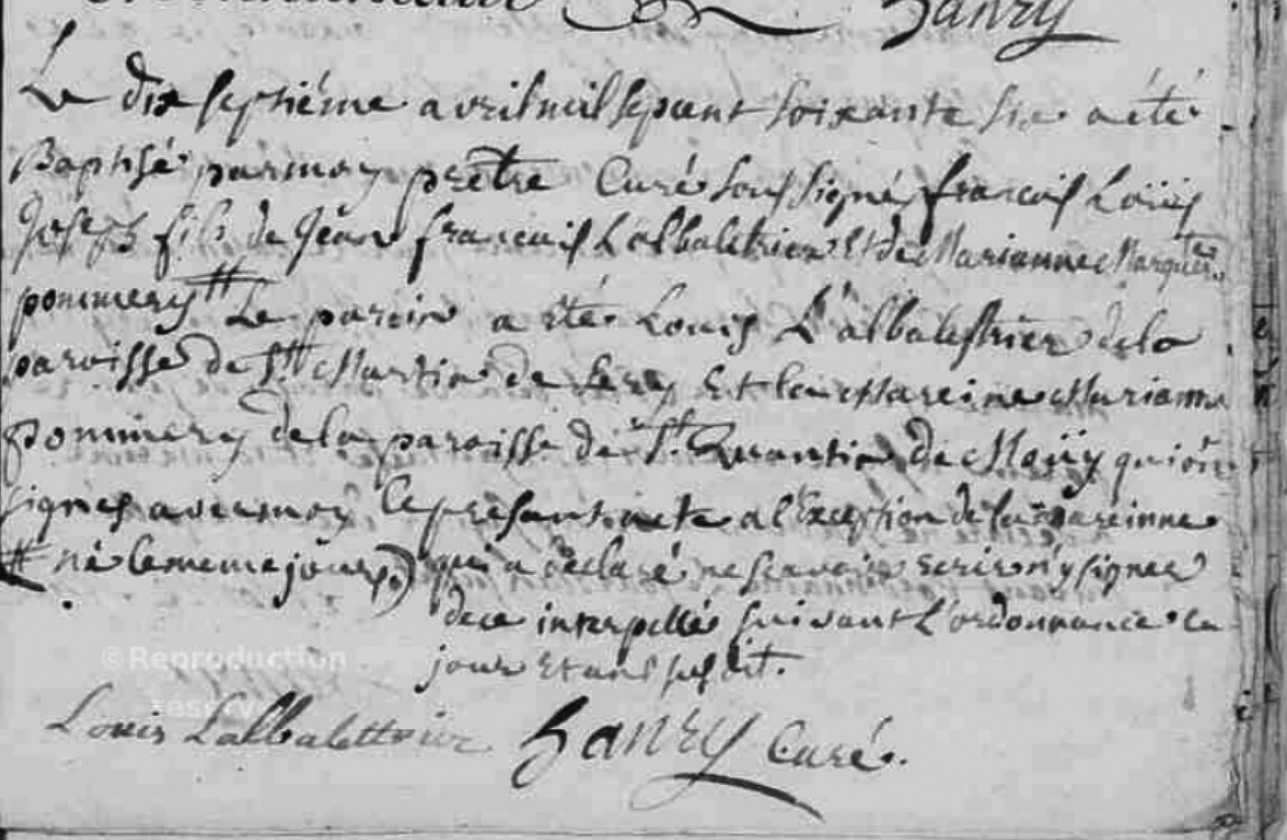 hanry
Le dix septiéme avril mil sepcent soixante six a été
Baptisé par moy prêtre Curé soussigné francois Loüis
Joseph fils de Jéan francois Lalbaletrier Et de Marianne Margtte
pommery # Le parein a été Louis L'albalestrier de la
paroisse de St Martin de Et la Mareine Marianne
pommery de la paroisse de St. Quantin de Moüy qui ont
signés avec moy le présant acte a l'Exception de la Mareinne
# né le meme jour.) qui a déclaré ne scavoir ecrire n'y signer
de ce interpellé suivant L'ordonnance les
jour et ans susdit.
©Reproduction
réservée
Louis Lalbalettrier hanry Curé.